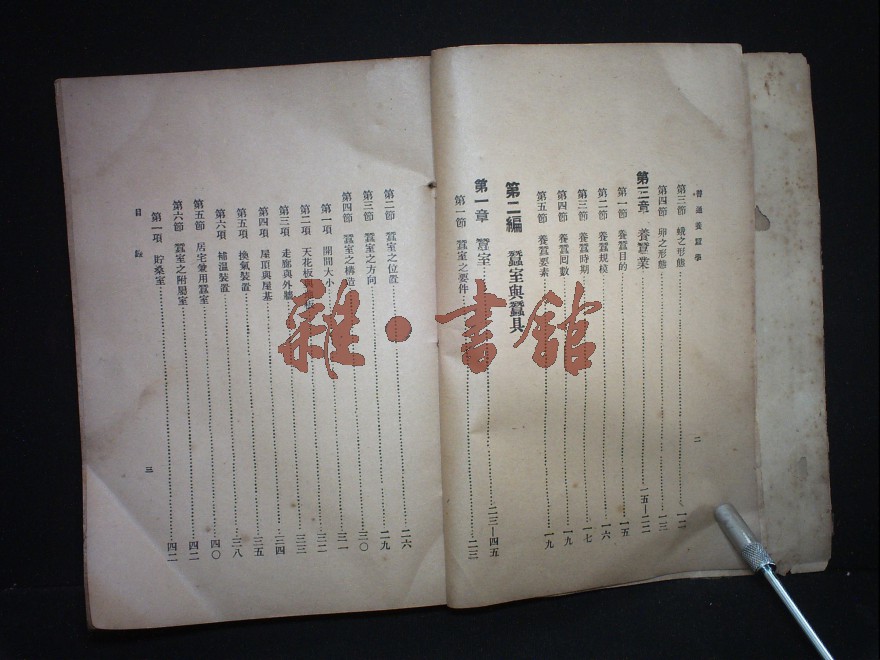 普通養蠶學
第三節 蛾之形態 一二
第四節 卵之形態 一三
第三章 養蠶業 一五—二二
第一節 養蠶目的 一五
第二節 養蠶規模 一六
第三節 養蠶時期 一七
第四節 養蠶回數 一九
第五節 養蠶要素 一九
第二編 蠶室與蠶具
第一章 蠶室 二三—四五
第一節 蠶室之要件 二三
二
第二節 蠶室之位置 二六
第三節 蠶室之方向 二九
第四節 蠶室之構造 三〇
第一項 開間大小 三一
第二項 天花板與 三二
第三項 走廊與外牆 三三
第四項 屋頂與屋基 三四
第五項 換氣裝置 三五
第六項 補溫裝置 三八
第五節 居宅兼用蠶室 四〇
第六節 蠶室之附屬室 四二
第一項 貯桑室 四二
目錄
三
雜·書館